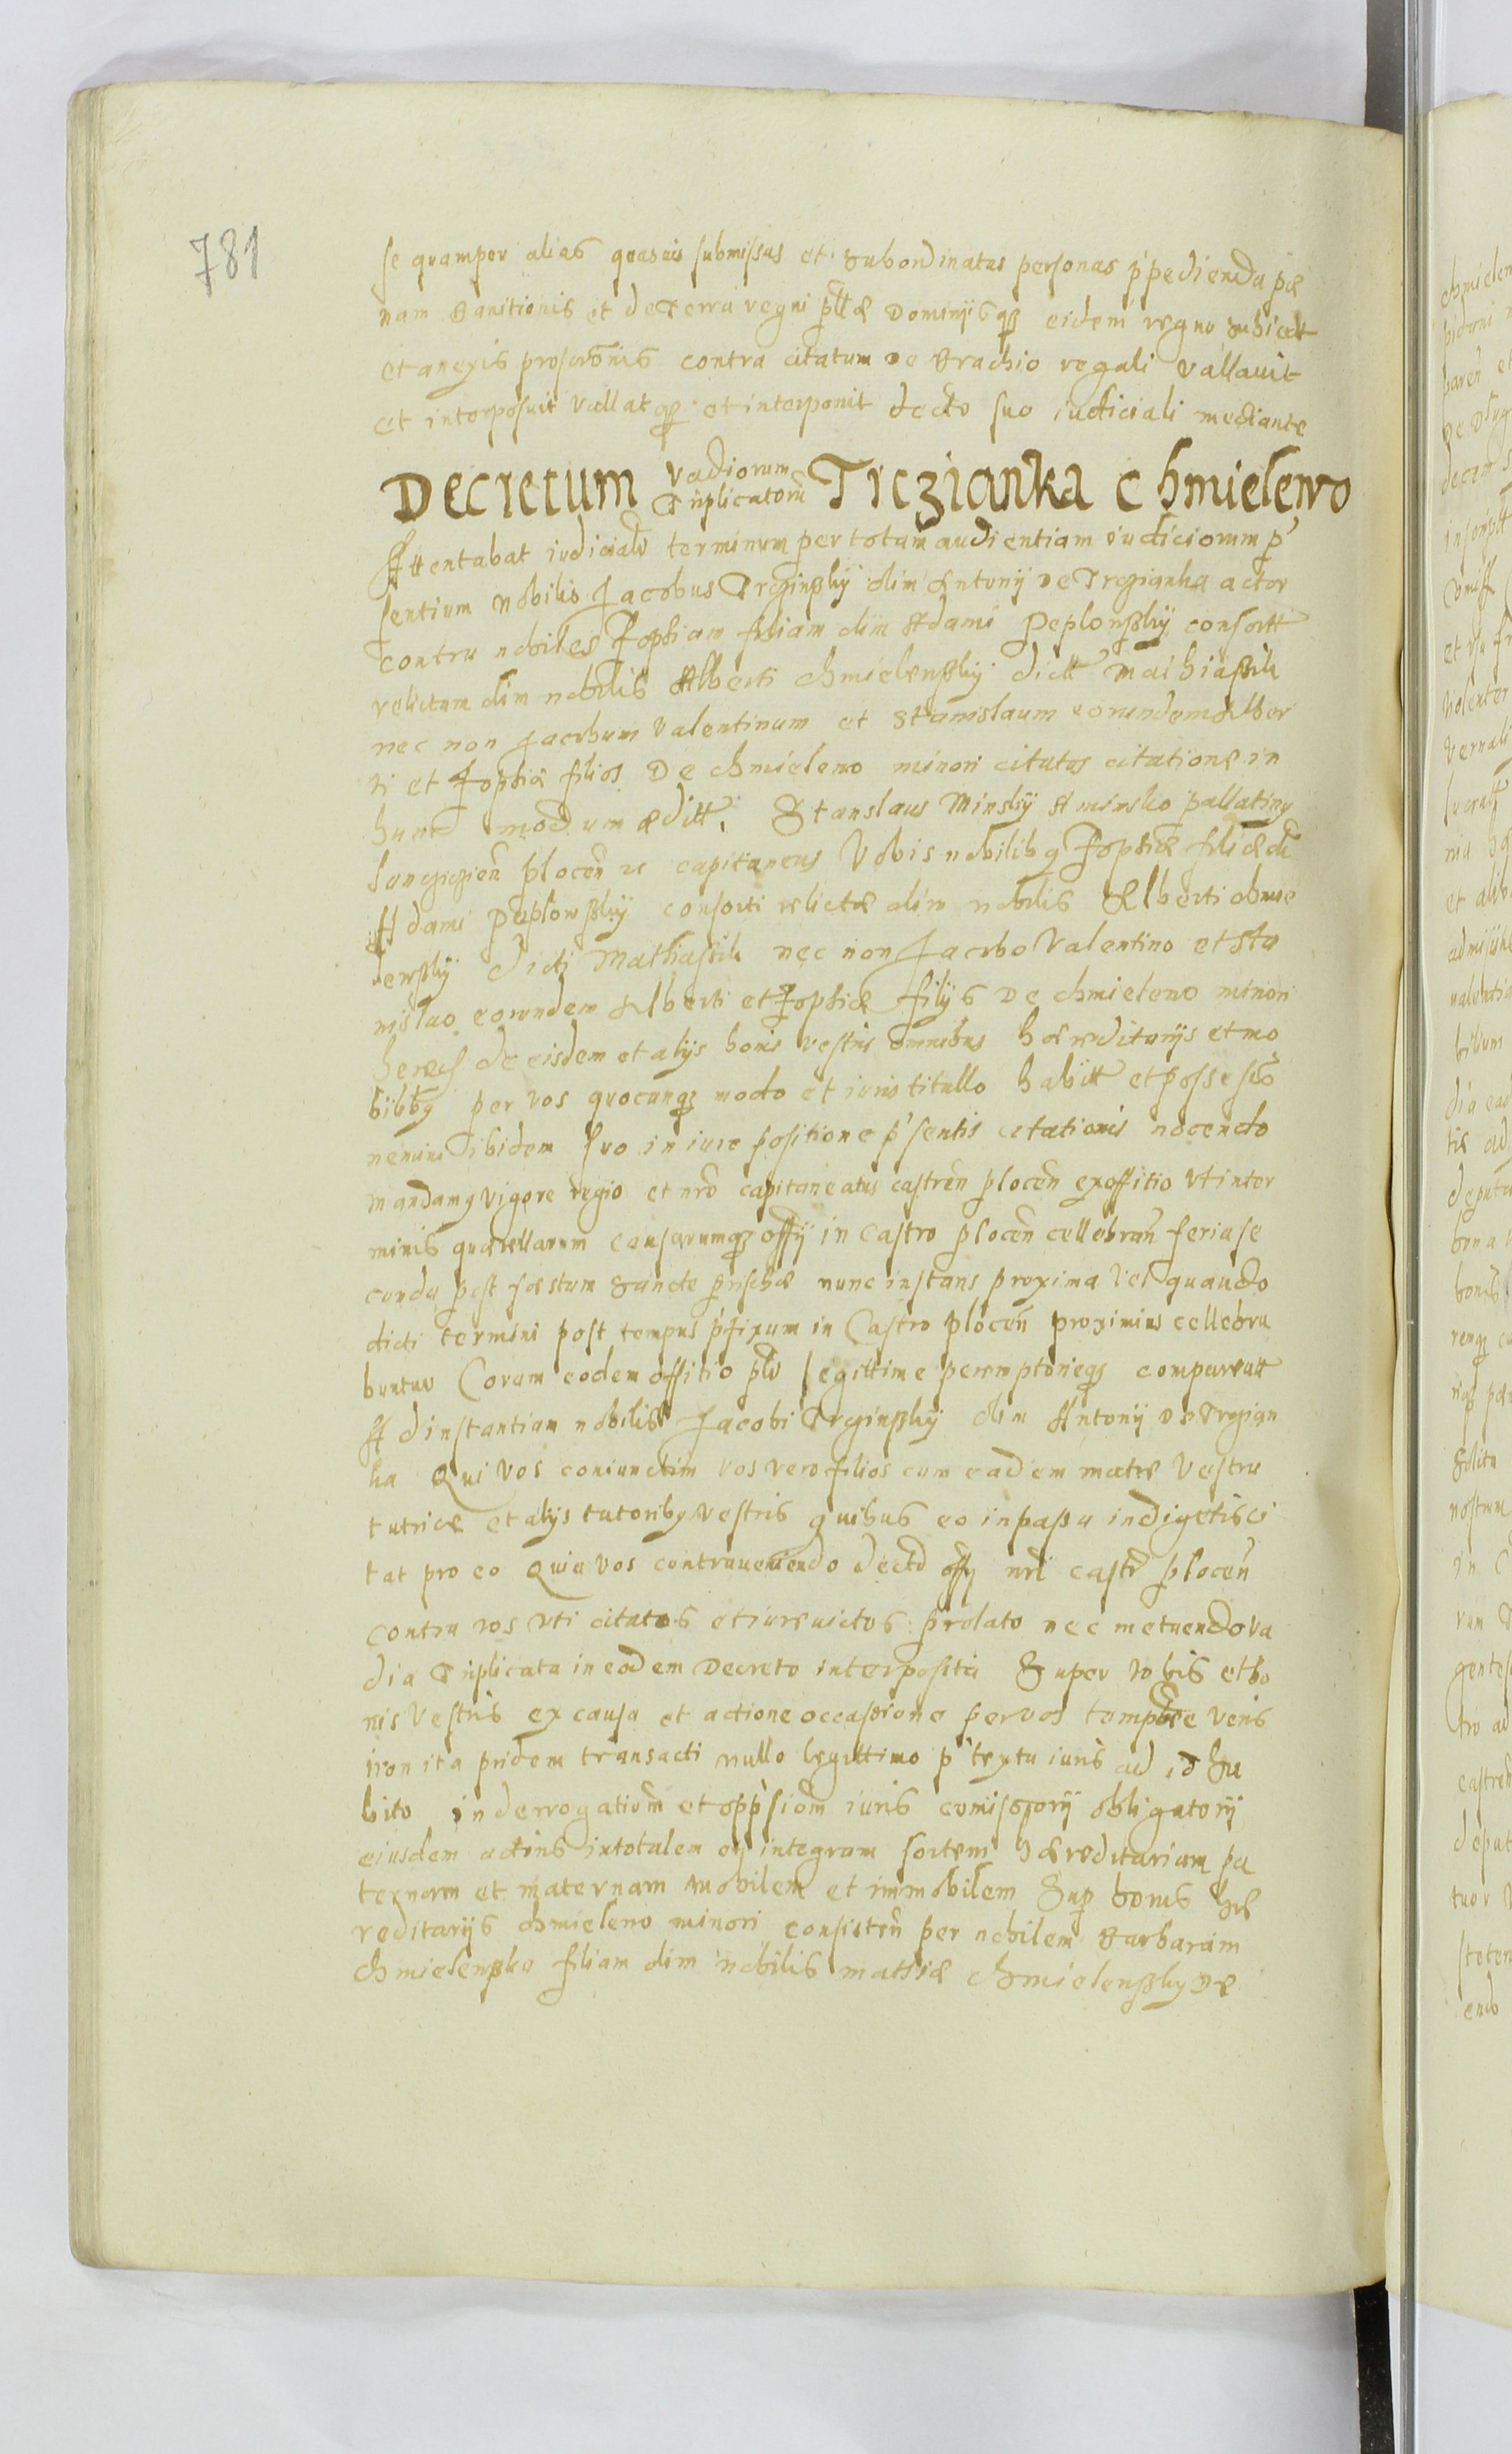 781
se quamper alias quasuis submissas et subordinatas personas p'pedienda pæ
nam Banitionis et de Terra regni pltæ Dominÿsqʒ eidem regno subiect
et anexis proscronis contra citatum de Brachio regali vallauit
et interposuit vallatqʒ et interponit decto suo iudiciali mediante
Decretum vadiorum Triplicatorũ Trczianka Chmielewo
Attentabat iudicialr terminum per totam audientiam iudiciorum p'
sentium nobilis Jacobus Trczinskÿ olim Antonij de Trczianka actor
contra nobiles Zophiam filiam olim Adami Peplonskÿ consortt
relictam olim nobilis Alberti chmielewskÿ dictt Mathiassik
nec non Jacobum Valentinum et Stanislaum eorundem Alber
ti et Zophiæ filios De chmielewo minori citatos citatione in
hunc modum æditt. Stanslaus Minskÿ A minsko pallatiny
lancziczieñ ploceñ zc capitaneus Vobis nobiliby Zophiæ filiæ oli
Adami Peplowskÿ consorti relictæ olim nobilis Alberti chmie
lewskÿ dicti Mathiassik nec non Jacobo Valentino et Sta
nislao eorundem Alberti et Zophiæ filÿs De chmielewo minori
hered de eisdem et alÿs bonis vestris omnibus hæreditarÿs et mo
bilibʒ per vos quocunqʒ modo et iuris titullo habitt et possess
nenini ibidem suo in iure positione p'sentis citationis nocendo
mandamy vigore regio et nrõ capitaneatus castreñ ploceñ exoffitio Vt inter
minis quærellarum causarumqʒ offÿ in castro ploceñ cellebrañ feria se
cunda post fæstum Sanctæ priscæ nunc instans proxima Vel quando
dicti termini post tempus p'fixum in Castro ploceñ proximius cellebra
buntur Coram eodem offitio plr legittime peremptorieqʒ compareatt
Ad instantiam nobilis Jacobi Trczinskÿ olim Antonij de Trczian
ka Qui vos coniunctim vos vero filios cum eadem matre Vestra
tutrice et alÿs tutoribʒ vestris quibus eo in passu indigetis ci
tat pro eo Quia vos contraueniendo decto offÿ nri castr ploceñ
contra vos vti citatos et iureuictos prolato nec metuendo va
dia Triplicata in eodem Decreto interposita Super vobis et bo
nis Vestris ex causa et actione occassione per vos tempore veris
non ita pridem transacti nullo legittimo p'textu iuris ad id ha
bito in derrogatiom et opp'siom iuris comissorÿ obligatorÿ
eiusdem actoris in totalem et integram sortem hæreditariam pa
ternam et maternam mobilem et immobilem Sup bonis hæ
reditarÿs chmielewo minori consisteñ per nobilem Barbaram
chmielewska filiam olim nobilis Mathiæ chmielewskÿ de